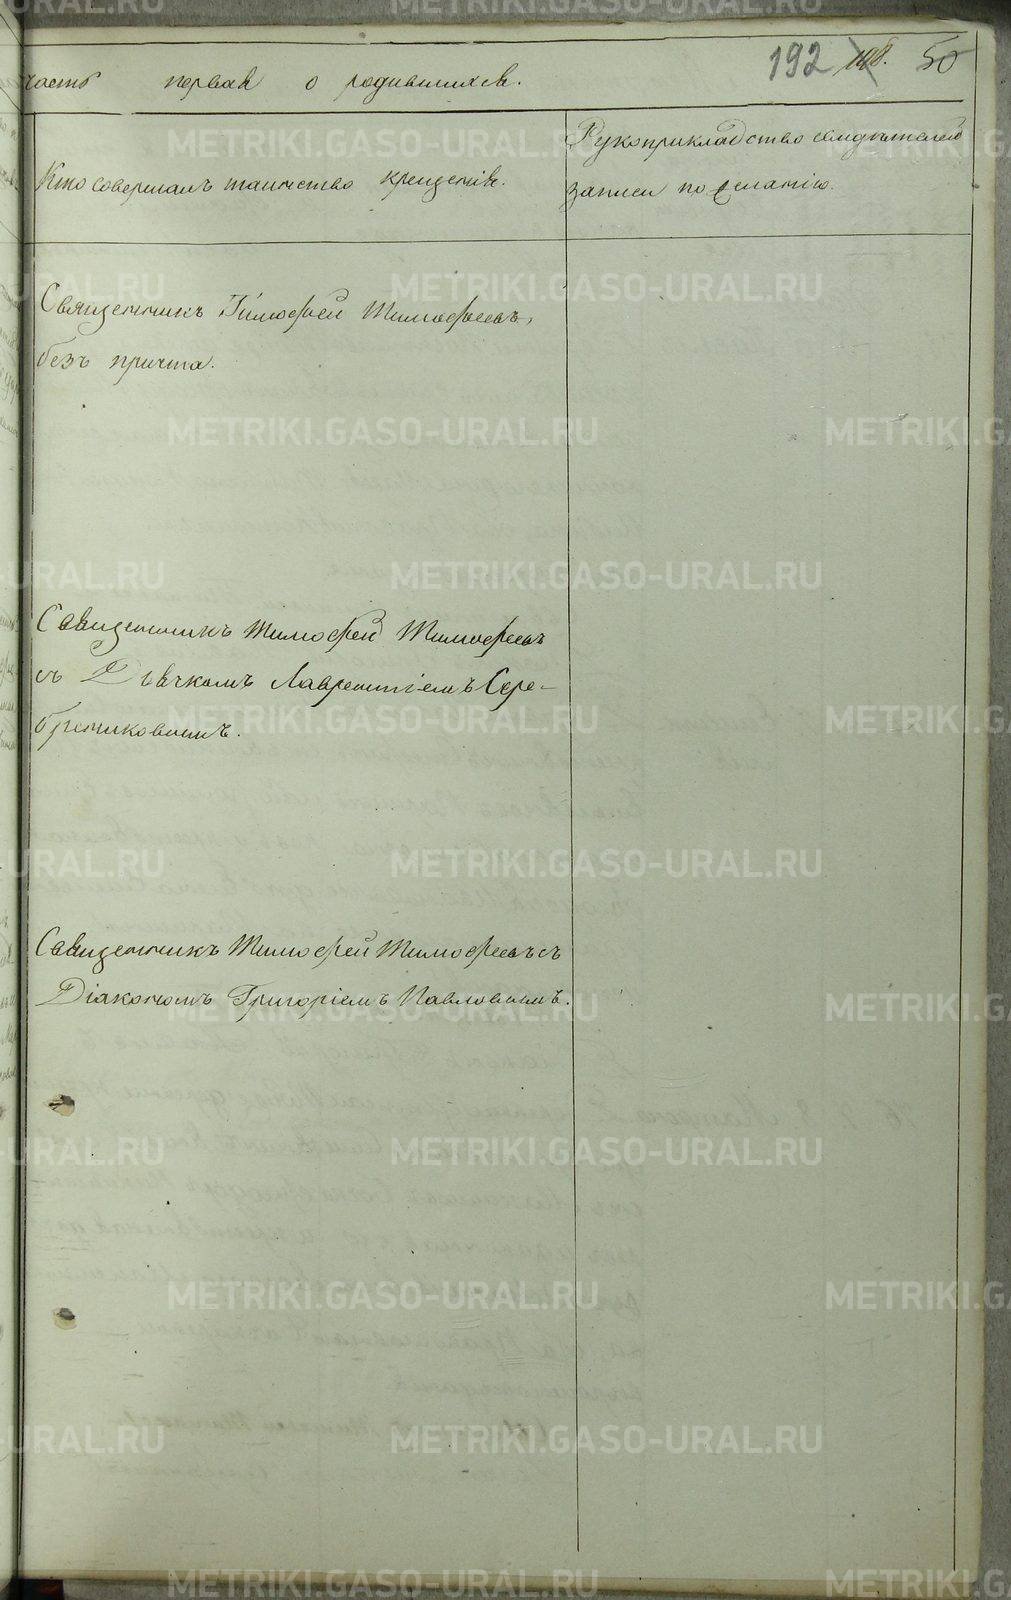 192 50
часть первая о родившихся.
Кто совершалъ таинство крещенія.
Рукоприкладство свидѣтелей
записи по желанію.
Священникъ Тимофей Тимофеевъ,
безъ причта.
Священникъ Тимофей Тимофеевъ
съ Дьячкомъ Лаврентіемъ Сере-
бренниковымъ.
Священникъ Тимофей Тимофеевъ съ
Діакономъ Григоріемъ Павловымъ.
METRIKI.GASO-URAL.RU